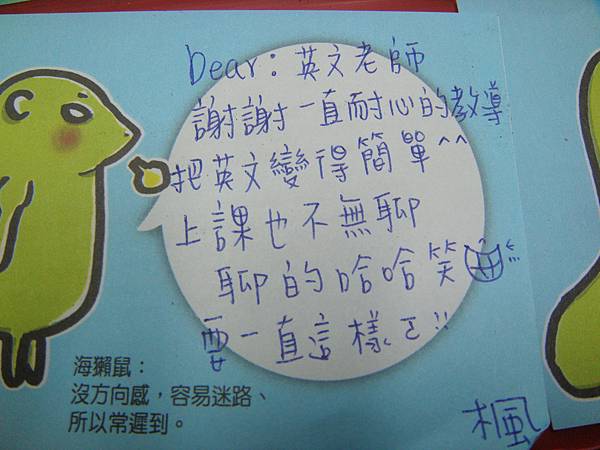 Dear：英文老師
謝謝一直耐心的教導
把英文變得簡單^^
上課也不無聊
聊的哈哈笑
要一直這樣ㄛ!!
海獺鼠：
沒方向感，容易迷路、
所以常遲到。
楓